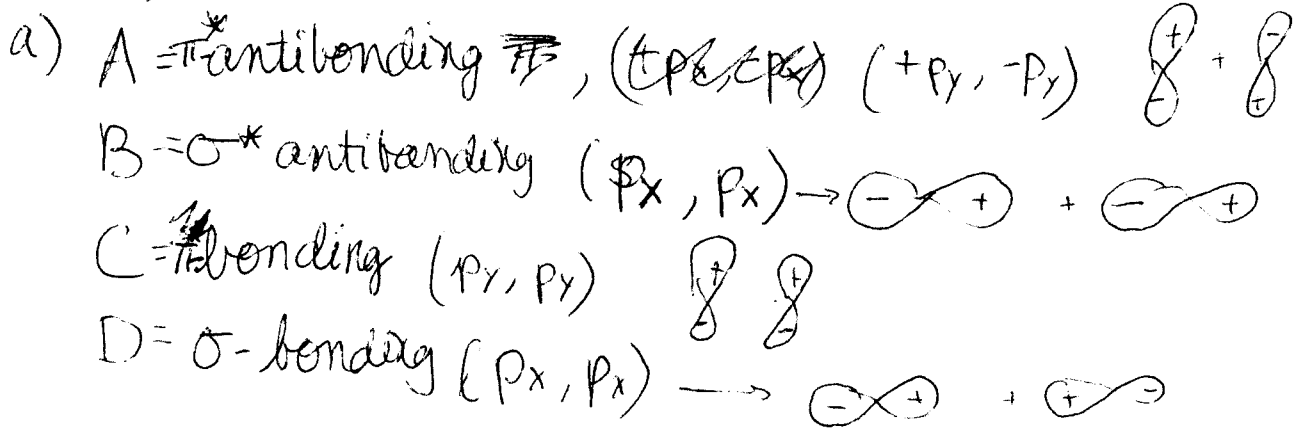 a) A = π* antibonding, (+py, -py) + - + - +
B = σ* antibonding (px, px) → - + + - +
C = π bonding (py, py) + - + -
D = σ - bonding (px, px) → - + + + -